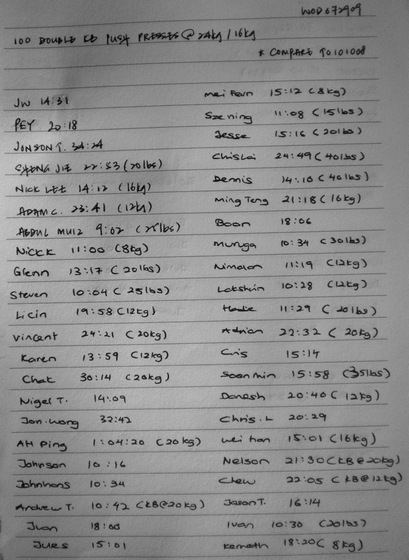 WOD 072909
100 DOUBLE KB PUSH PRESSES @ 24kg / 16kg
* COMPARE TO 101008
JW 14:31
PEY 20:18
JONSON T. 34:24
SHENG JIE 22:53 (20lbs)
NICK LEE 14:12 (16kg)
ADAM C. 23:41 (12kg)
ABDUL MUIZ 9:02 (25lbs)
Nick K 11:00 (8kg)
Glenn 13:17 (20lbs)
Steven 10:04 (25lbs)
Licin 19:58 (12kg)
Vincent 24:21 (20kg)
Karen 13:59 (12kg)
Chat 30:14 (20kg)
Nigel T. 14:09
Jon. Wong 32:42
AH Ping 1:04:20 (20kg)
Johnson 10:16
Johnhans 10:34
Andrew T. 10:42 (KB@20kg)
Juan 18:03
Jules 15:01
Mei Fern 15:12 (8kg)
Sze ning 11:08 (15lbs)
Jesse 15:16 (20lbs)
Chislai 24:49 (40lbs)
Dennis 14:10 (40lbs)
Ming Teng 21:18 (16kg)
Boon 18:06
Munga 10:34 (30lbs)
Nimalan 11:19 (12kg)
Lakshin 10:28 (12kg)
11:29 (20lbs)
Adrian 22:32 (20kg)
Cris 15:14
Soon Min 15:58 (35lbs)
Danesh 20:40 (12kg)
Chris. L 20:29
Wei Han 15:01 (16kg)
Nelson 21:30 (KB@20kg)
Chew 22:05 (KB@12kg)
Jason T. 16:14
Ivan 10:30 (20lbs)
Kenneth 18:20 (8kg)